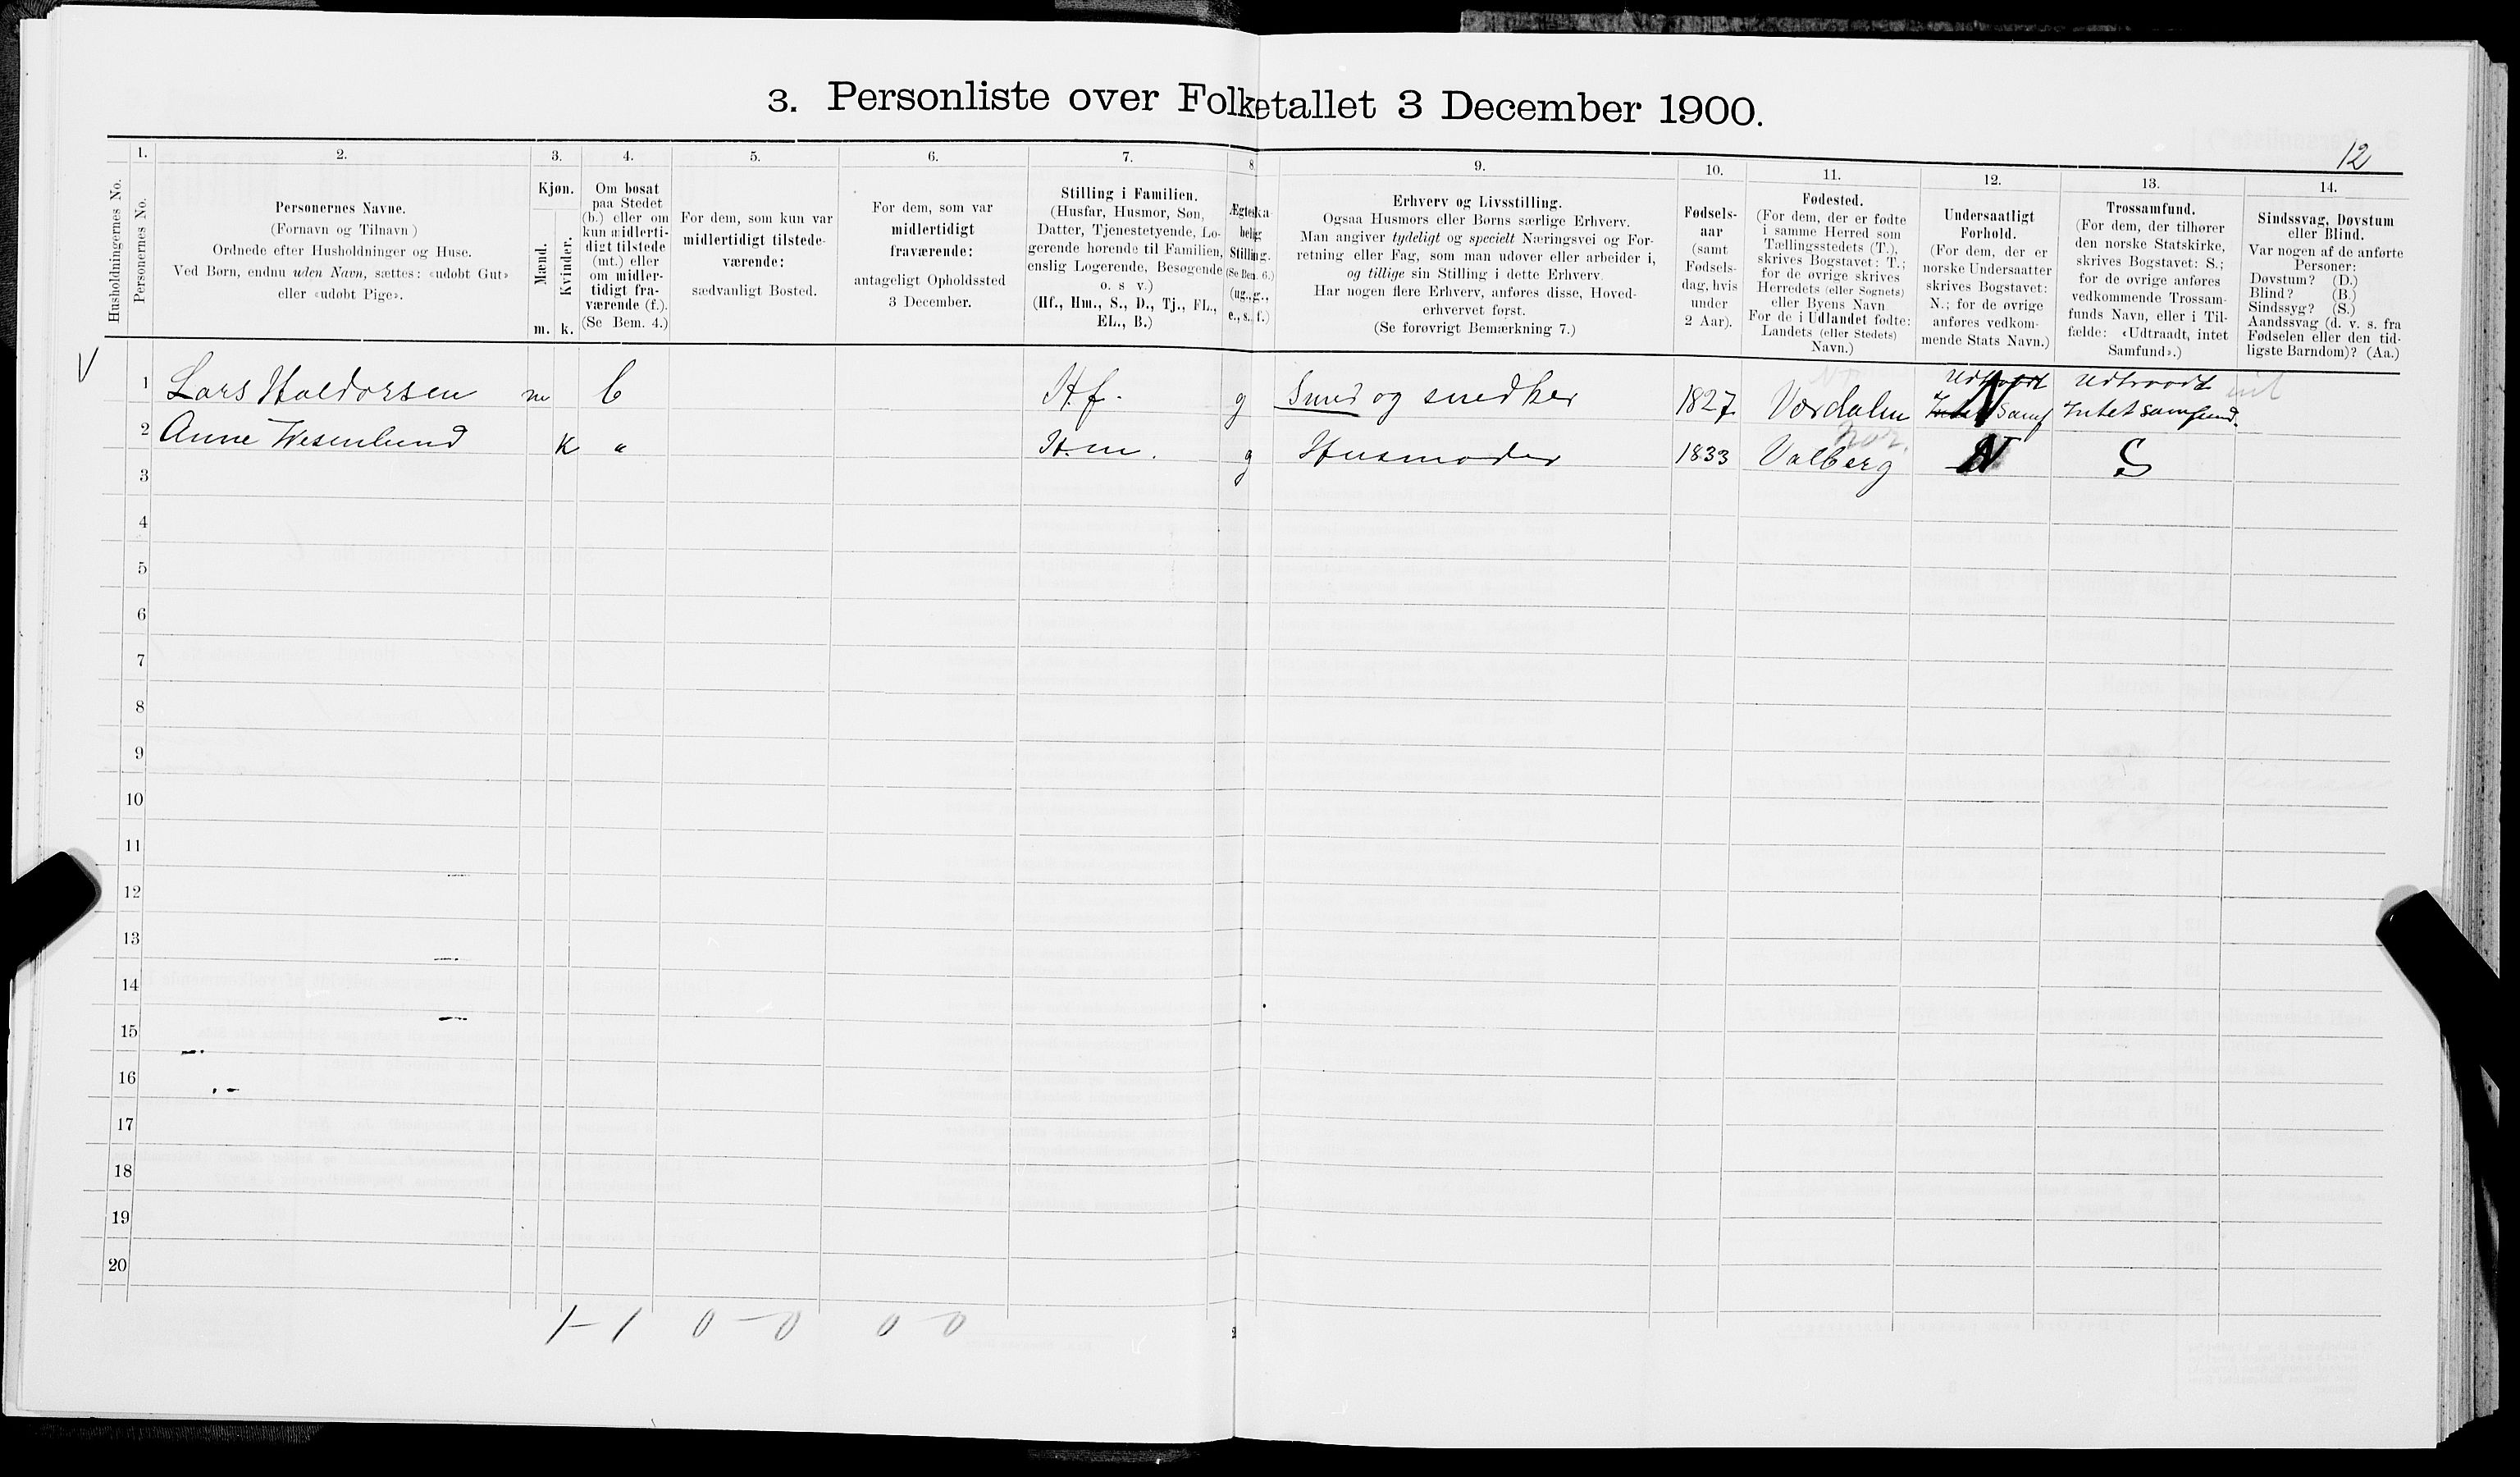 3. Personliste over Folketallet 3 December 1900.
12
1. 2. 3. 4. 5. 6. 7. 8 9. 10. 11. 12. 13. 14.
Husholdningernes No.
Personernes No.
Personernes Navne.
(Fornavn og Tilnavn)
Ordnede efter Husholdninger og Huse.
Ved Børn, endnu uden Navn, sættes: «udøbt Gut»
eller «udøbt Pige».
Kjøn.
Mænd.
Kvinder.
m. k.
Om bosat
paa Stedet
(b.) eller om
kun midlerti-
digt tilstede
(mt.) eller
om midler-
tidigt fra-
værende (f.).
(Se Bem. 4.)
For dem, som kun var
midlertidigt tilstede-
værende:
sædvanligt Bosted.
For dem, som var
midlertidigt
fraværende:
antageligt Opholdssted
3 December.
Stilling i Familien.
(Husfar, Husmor, Søn,
Datter, Tjenestetyende, Lo-
gerende hørende til Familien,
enslig Logerende, Besøgende
o. s v.)
(Hf., Hm., S., D., Tj., FL.,
EL., B.)
Ægteska-
belig
Stilling.
(Se Bem. 6.)
(ug., g.,
e., s., f.)
Erhverv og Livsstilling.
Ogsaa Husmors eller Børns særlige Erhverv.
Man angiver tydeligt og specielt Næringsvei og For-
retning eller Fag, som man udøver eller arbeider i,
og tillige sin Stilling i dette Erhverv.
Har nogen flere Erhverv, anføres disse, Hoved-
erhvervet først.
(Se forøvrigt Bemærkning 7.)
Fødsels-
aar
(samt
Fødsels-
dag, hvis
under
2 Aar).
Fødested.
(For dem, der er fødte
i samme Herred som
Tællingsstedets (T.),
skrives Bogstavet: T.;
for de øvrige skrives
Herredets (eller Sognets)
eller Byens Navn
For de i Udlandet fødte:
Landets (eller Stedets)
Navn.)
Undersaatligt
Forhold.
(For dem, der er
norske Undersaatter
skrives Bogstavet:
N.; for de øvrige
anføres vedkom-
mende Stats Navn.)
Trossamfund.
(For dem, der tilhører
den norske Statskirke,
skrives Bogstavet: S.;
for de øvrige anføres
vedkommende Trossam-
funds Navn, eller i Til-
fælde: «Udtraadt, intet
Samfund».)
Sindssvag, Døvstum
eller Blind.
Var nogen af de anførte
Personer:
Døvstum? (D.)
Blind? (B.)
Sindssyg? (S.)
Aandssvag (d. v. s. fra
Fødselen eller den tid-
ligste Barndom)? (Aa.)
V
1 Lars Haldorsen m b Hf. g Smed og snedker 1827 Værdalen Udtraadt Intet Samf N Udtraadt Intet samfund.
2 Anne Wesenlund k " H.m. g Husmoder 1833 Valberg Nor. N S
3
4
5
6
7
8
9
10
11
12
13
14
15
16
17
18
19
20
1-1 0-0 0 0